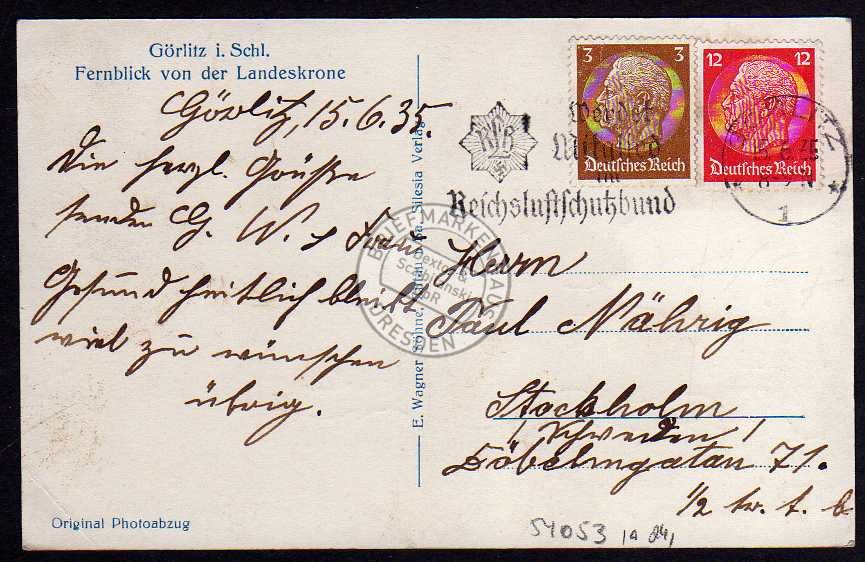 Görlitz i. Schl.
Fernblick von der Landeskrone
Görlitz, 15.6.35.
Die herzl. Grüße
senden G. W. & Frau
Gesundheitlich bleibt
viel zu wünschen
übrig.
Original Photoabzug
E. Wagner Söhne, Zittau Silesia Verlag
3 3
Deutsches Reich
12 12
Deutsches Reich
RLB
Werdet
Mitglied
im
Reichsluftschutzbund
GÖRLITZ
1
Herrn
Paul Nährig
Stockholm
/ Schweden /
Döbelnsgatan 71.
1/2 tr.
BRIEFMARKENHAUS
DRESDEN
54053